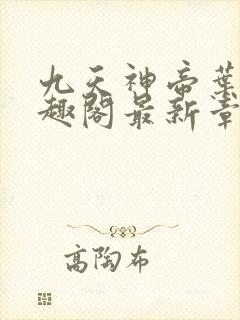 九天神帝葉
趣閣最新章
高陶布